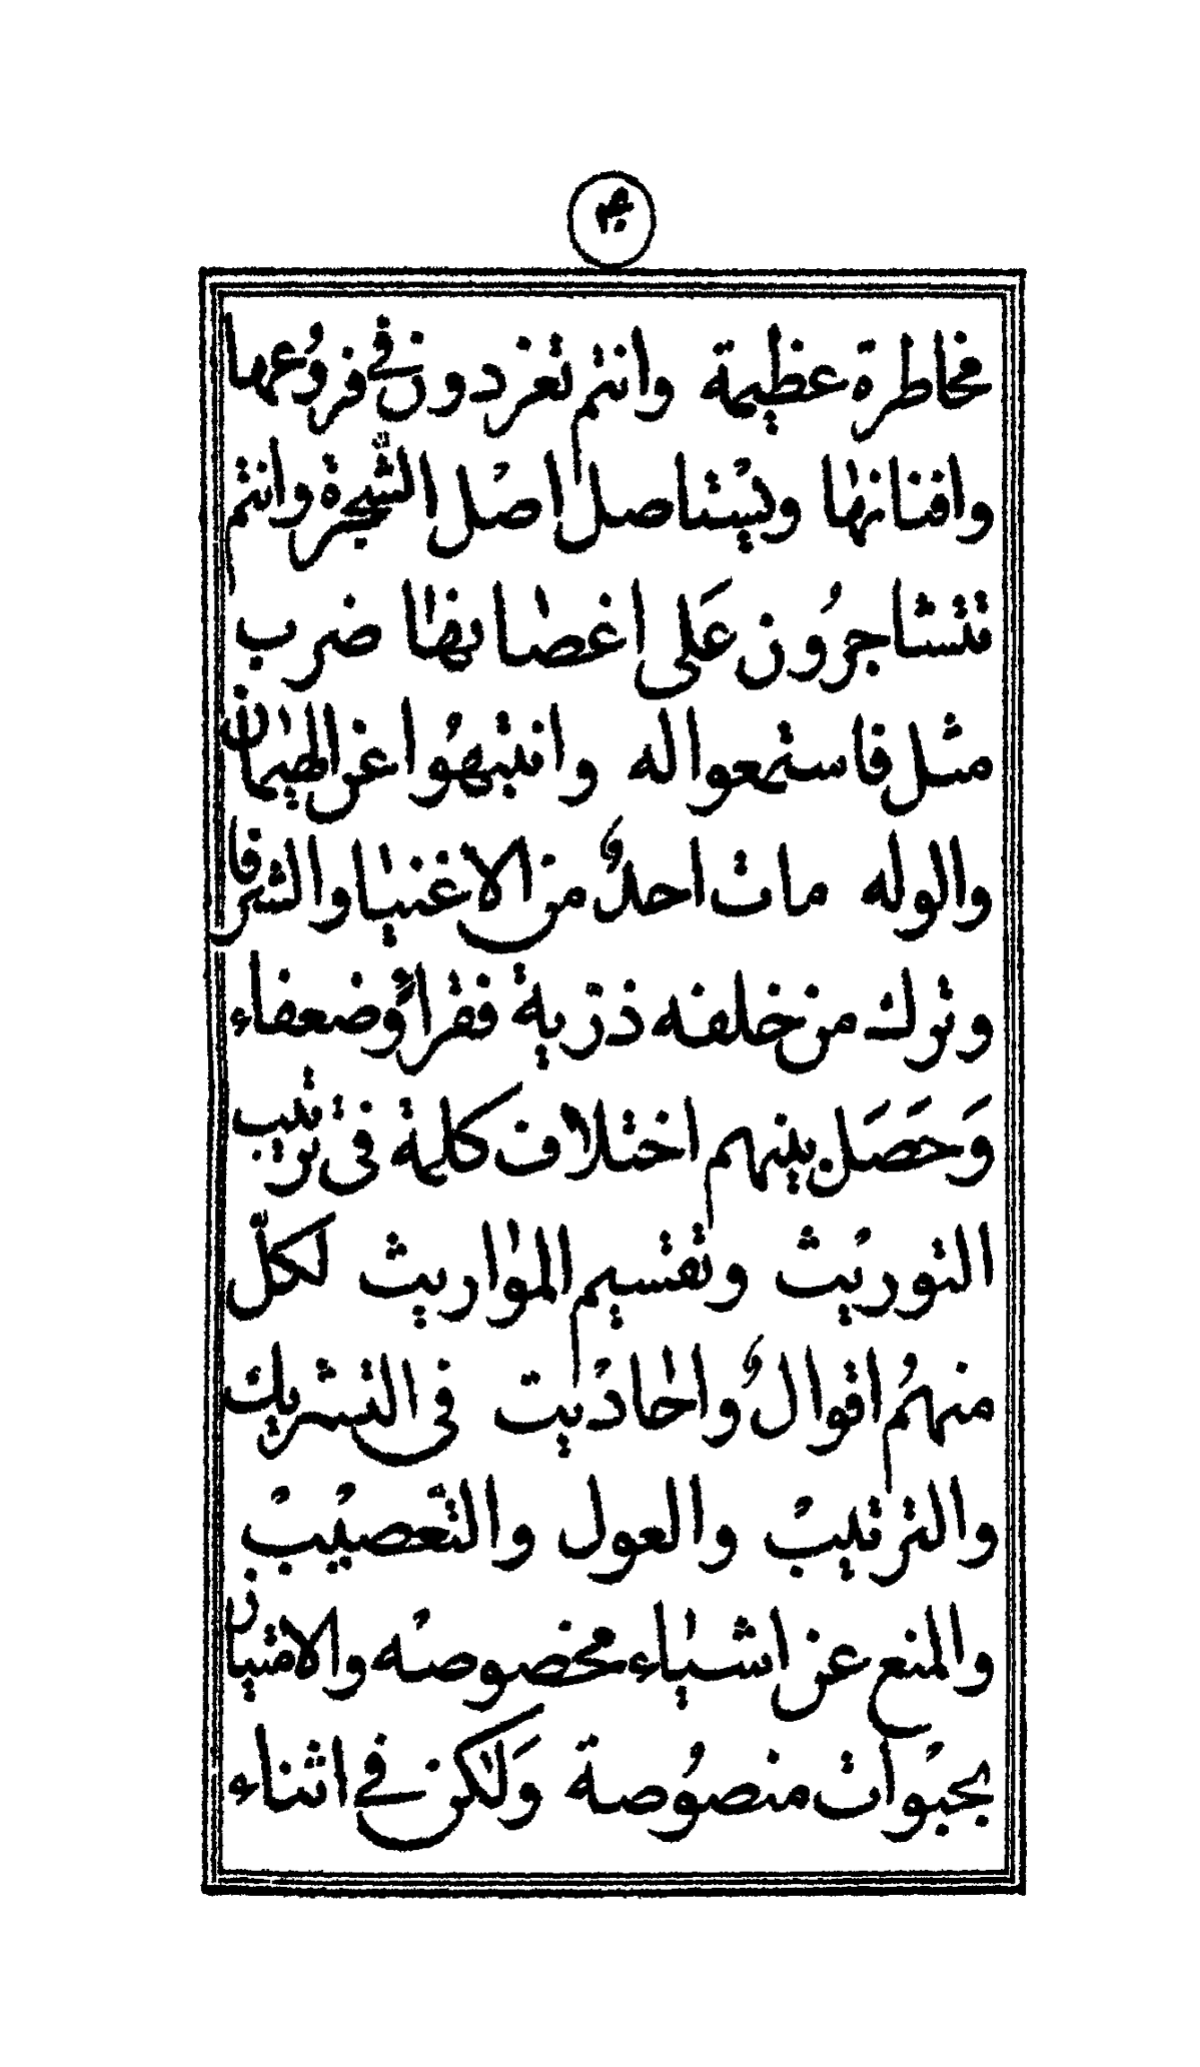 مخاطرة عظيمة وانتم تغردون في فروعها
وافنانها ويستاصل اصل الشّجرة وانتم
تتشاجرُون عَلى اغصٰانهٰا ضرب
مثل فاستمعوا له وانتبهُوا عن الهيمٰان
والوله مات احدٌ من الاغنيٰا والشرفا
وترك من خلفه ذرّية فقراءً وضعفاء
وَحَصَل بينهم اختلاف كلمة فى ترتيب
التوريث وتقسيم المواريث لكلّ
منهمُ اقوالٌ واحٰاديث فى التشريك
والترتيب والعول والتّعصيب
والمنع عن اشيٰاء مخصوصه والامتياز
بحبوات منصُوصة وَلٰكن في اثناء